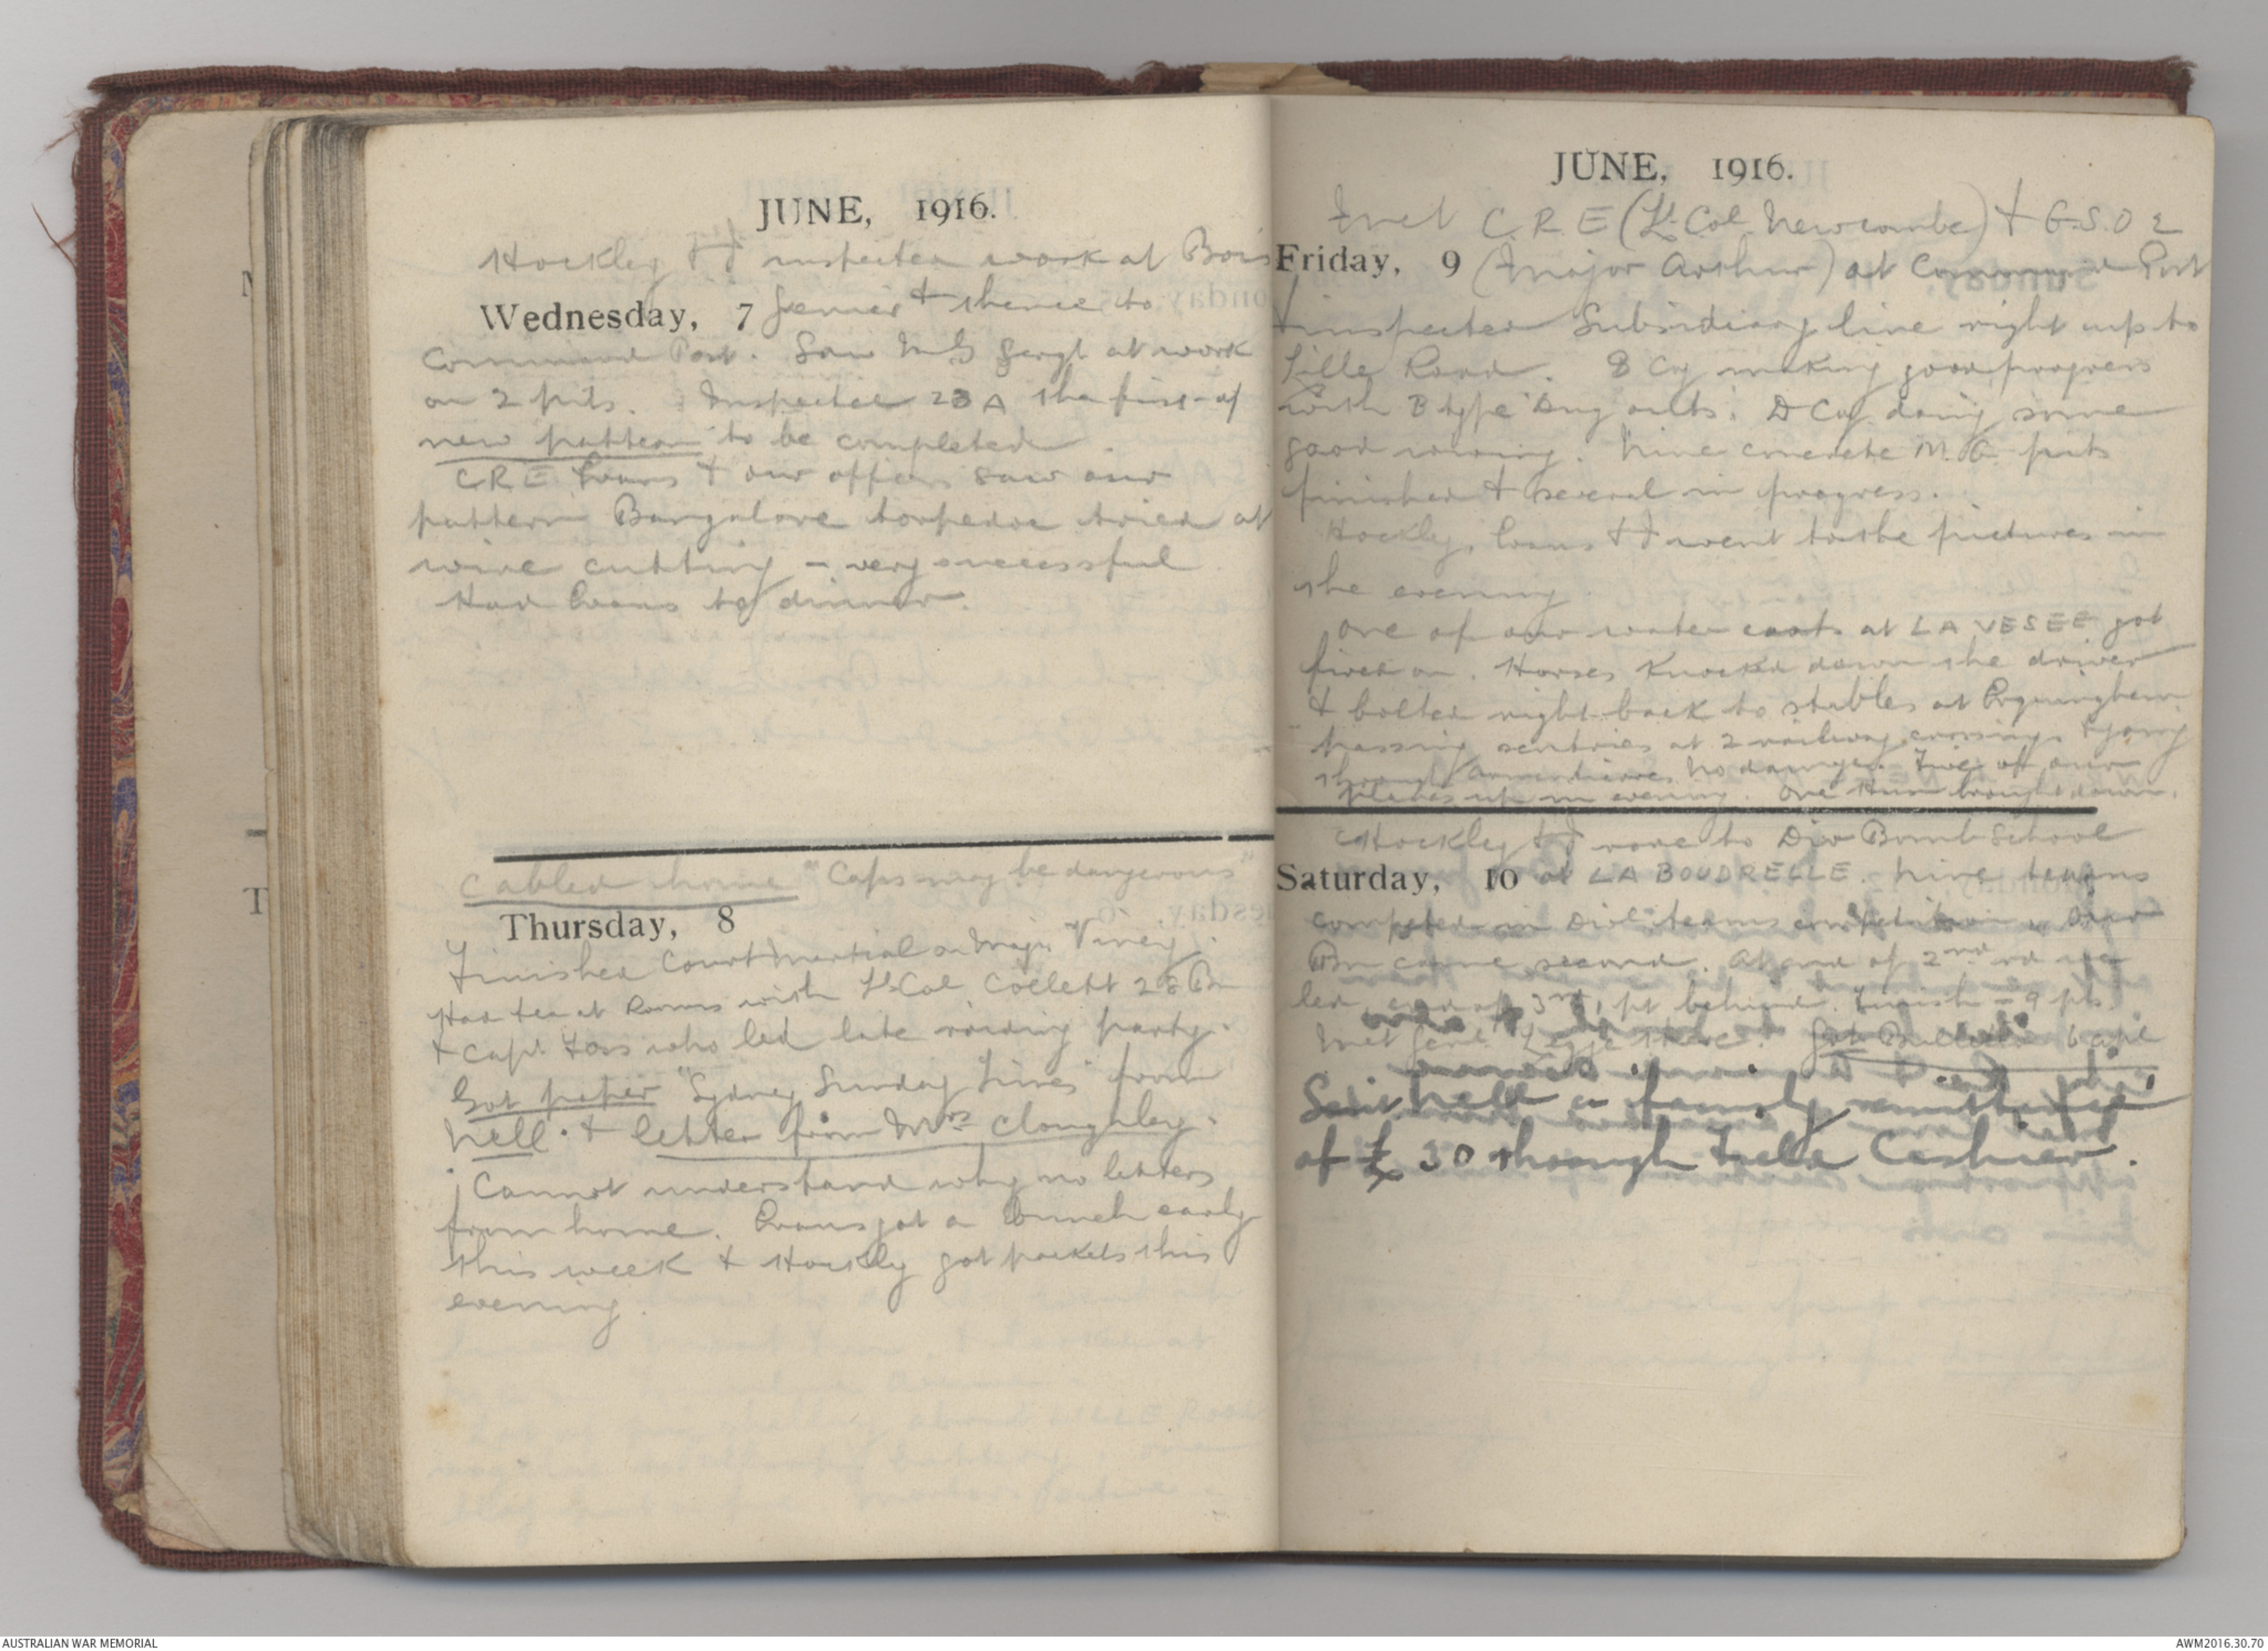 JUNE, 1916.
Hockley & I inspected work at Bois
Wednesday, 7 Grenier & thence to
Command Post. Saw M.G Sergt at work
on 2 pits. Inspected 23A the first of
new pattern to be completed
CRE Evans & our officers saw our
pattern Bangalore torpedoe tried at
wire cutting - very successful
Had Evans to dinner.
Cabled home "Caps may be dangerous"
Thursday, 8
Finished Court Martial on Major Viney.
Had tea at Rooms with Lt Col Collett 28 Bn
& Capt Foss who led late raiding party.
Got paper "Sydney Sunday Times" from
Nell & letter from Mrs Cloughley.
Cannot understand why no letters
from home. Evans got a bunch early
this week & Hockly got packets this
evening.
JUNE, 1916.
I met C.R.E (Lt-Col Newcombe) & G.S.O 2
Friday, 9 (Major Arthur) at Command Post
& inspected Subsidiary line right up to
Lille Road. B Coy making good progress
with B type Dug outs. D Coy doing some
good wiring. Nine concrete M.G. pits
finished & several in progress.
Hockly, Evans & I went to the pictures in
the evening.
One of our water carts at LA VESEE got
fired on. Horses knocked down the driver
& bolted right back to stables at Erquinghem
passing sentries at 2 railway crossings & going
through Armentieres. No damage. Five of our
planes up in evening. One Hun brought down.
Hockley & I rode to Div Bomb School
Saturday, 10 at LA BOUDRELLE. Nine teams
competed in Div. teams competition. Our
Bn came second. At end of 2nd rd we
led, end of 3rd 1 pt behind. Finish - 9 pts.
Met Genl Legge there. Got Bulletin 6 Apl
Sent Nell a family remittance
of £30 through Field Cashier.
AUSTRALIAN WAR MEMORIAL
AWM2016.30.70